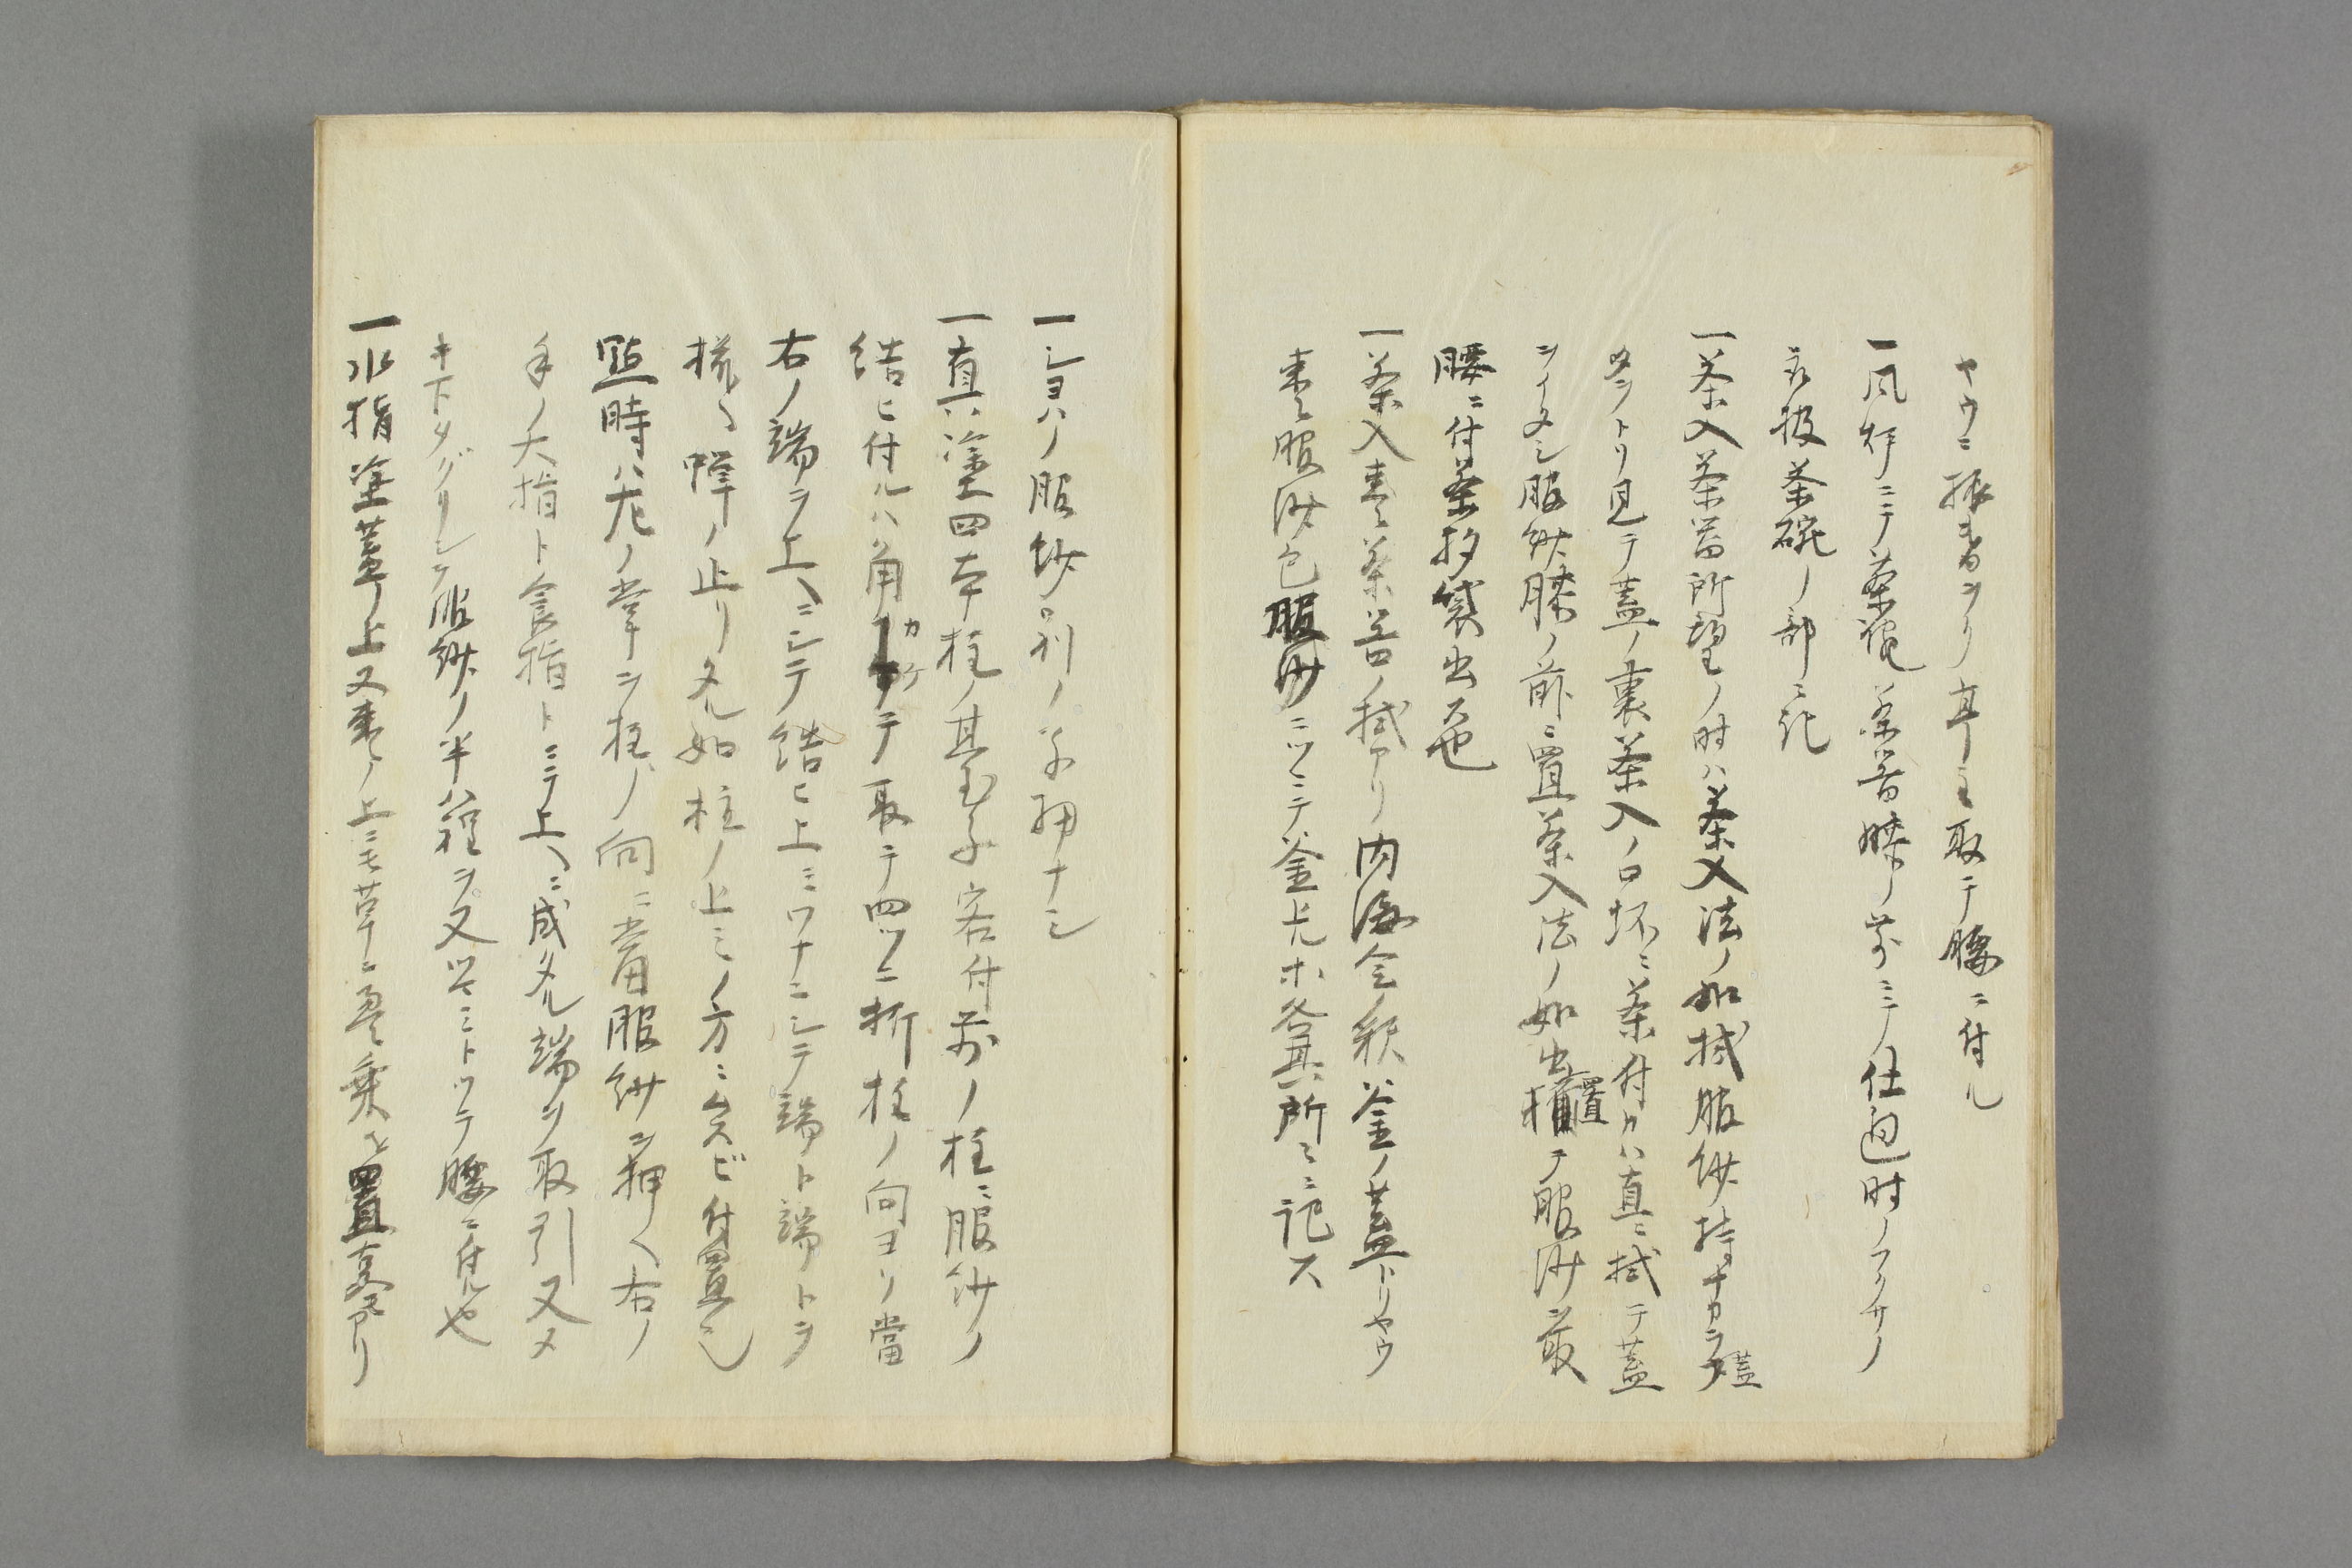 ヤウニ振書アリ亭主取テ腰ニ付ル
一風炉ニテ茶碗茶器膝ノ前ニテ仕廻時ノフクサノ
扱茶碗ノ部ニ記
一茶入茶器所望ノ時ハ茶入法ノ如拭服紗持ナカラ蓋
ヲトリ見テ蓋ノ裏茶入ノ口抔ニ茶付カハ直ニ拭テ蓋
ヲイタシ服紗膝ノ前ニ置茶入法ノ如出置テ服紗取
腰ニ付茶杓袋出ス也
一茶入棗茶器ノ拭アリ内海釜ノ蓋トリヤウ
棗服紗包服紗ニツニテ釜上ル不各其所々ニ記ス
一シヨハノ服紗別ノ子細ナシ
一真ハ塗四本柱ノ其子客付前ノ柱ニ服紗ノ
結ヒ付ルハ角カケテ取テ四ツニ折柱ノ向ヨリ當
右ノ端ヲ上ヘニシテ結ヒ上ミワナニシテ端ト端トヲ
様ク幃ノ止リタル如柱ノ上ミノ方ニムスビ付置シ
點時ハ左ノ掌ヲ柱ノ向ニ當服紗ヲ押ヘ右ノ
手ノ大指ト食指トニテ上ヘニ成タル端ヲ取引又メ
キ下タグリシ服紗ノ半ハ程ヲ又ツミトツテ腰ニ付ル也
一水指塗蓋上又棗ノ上ニモ草ニ畳乗セ置事アリ